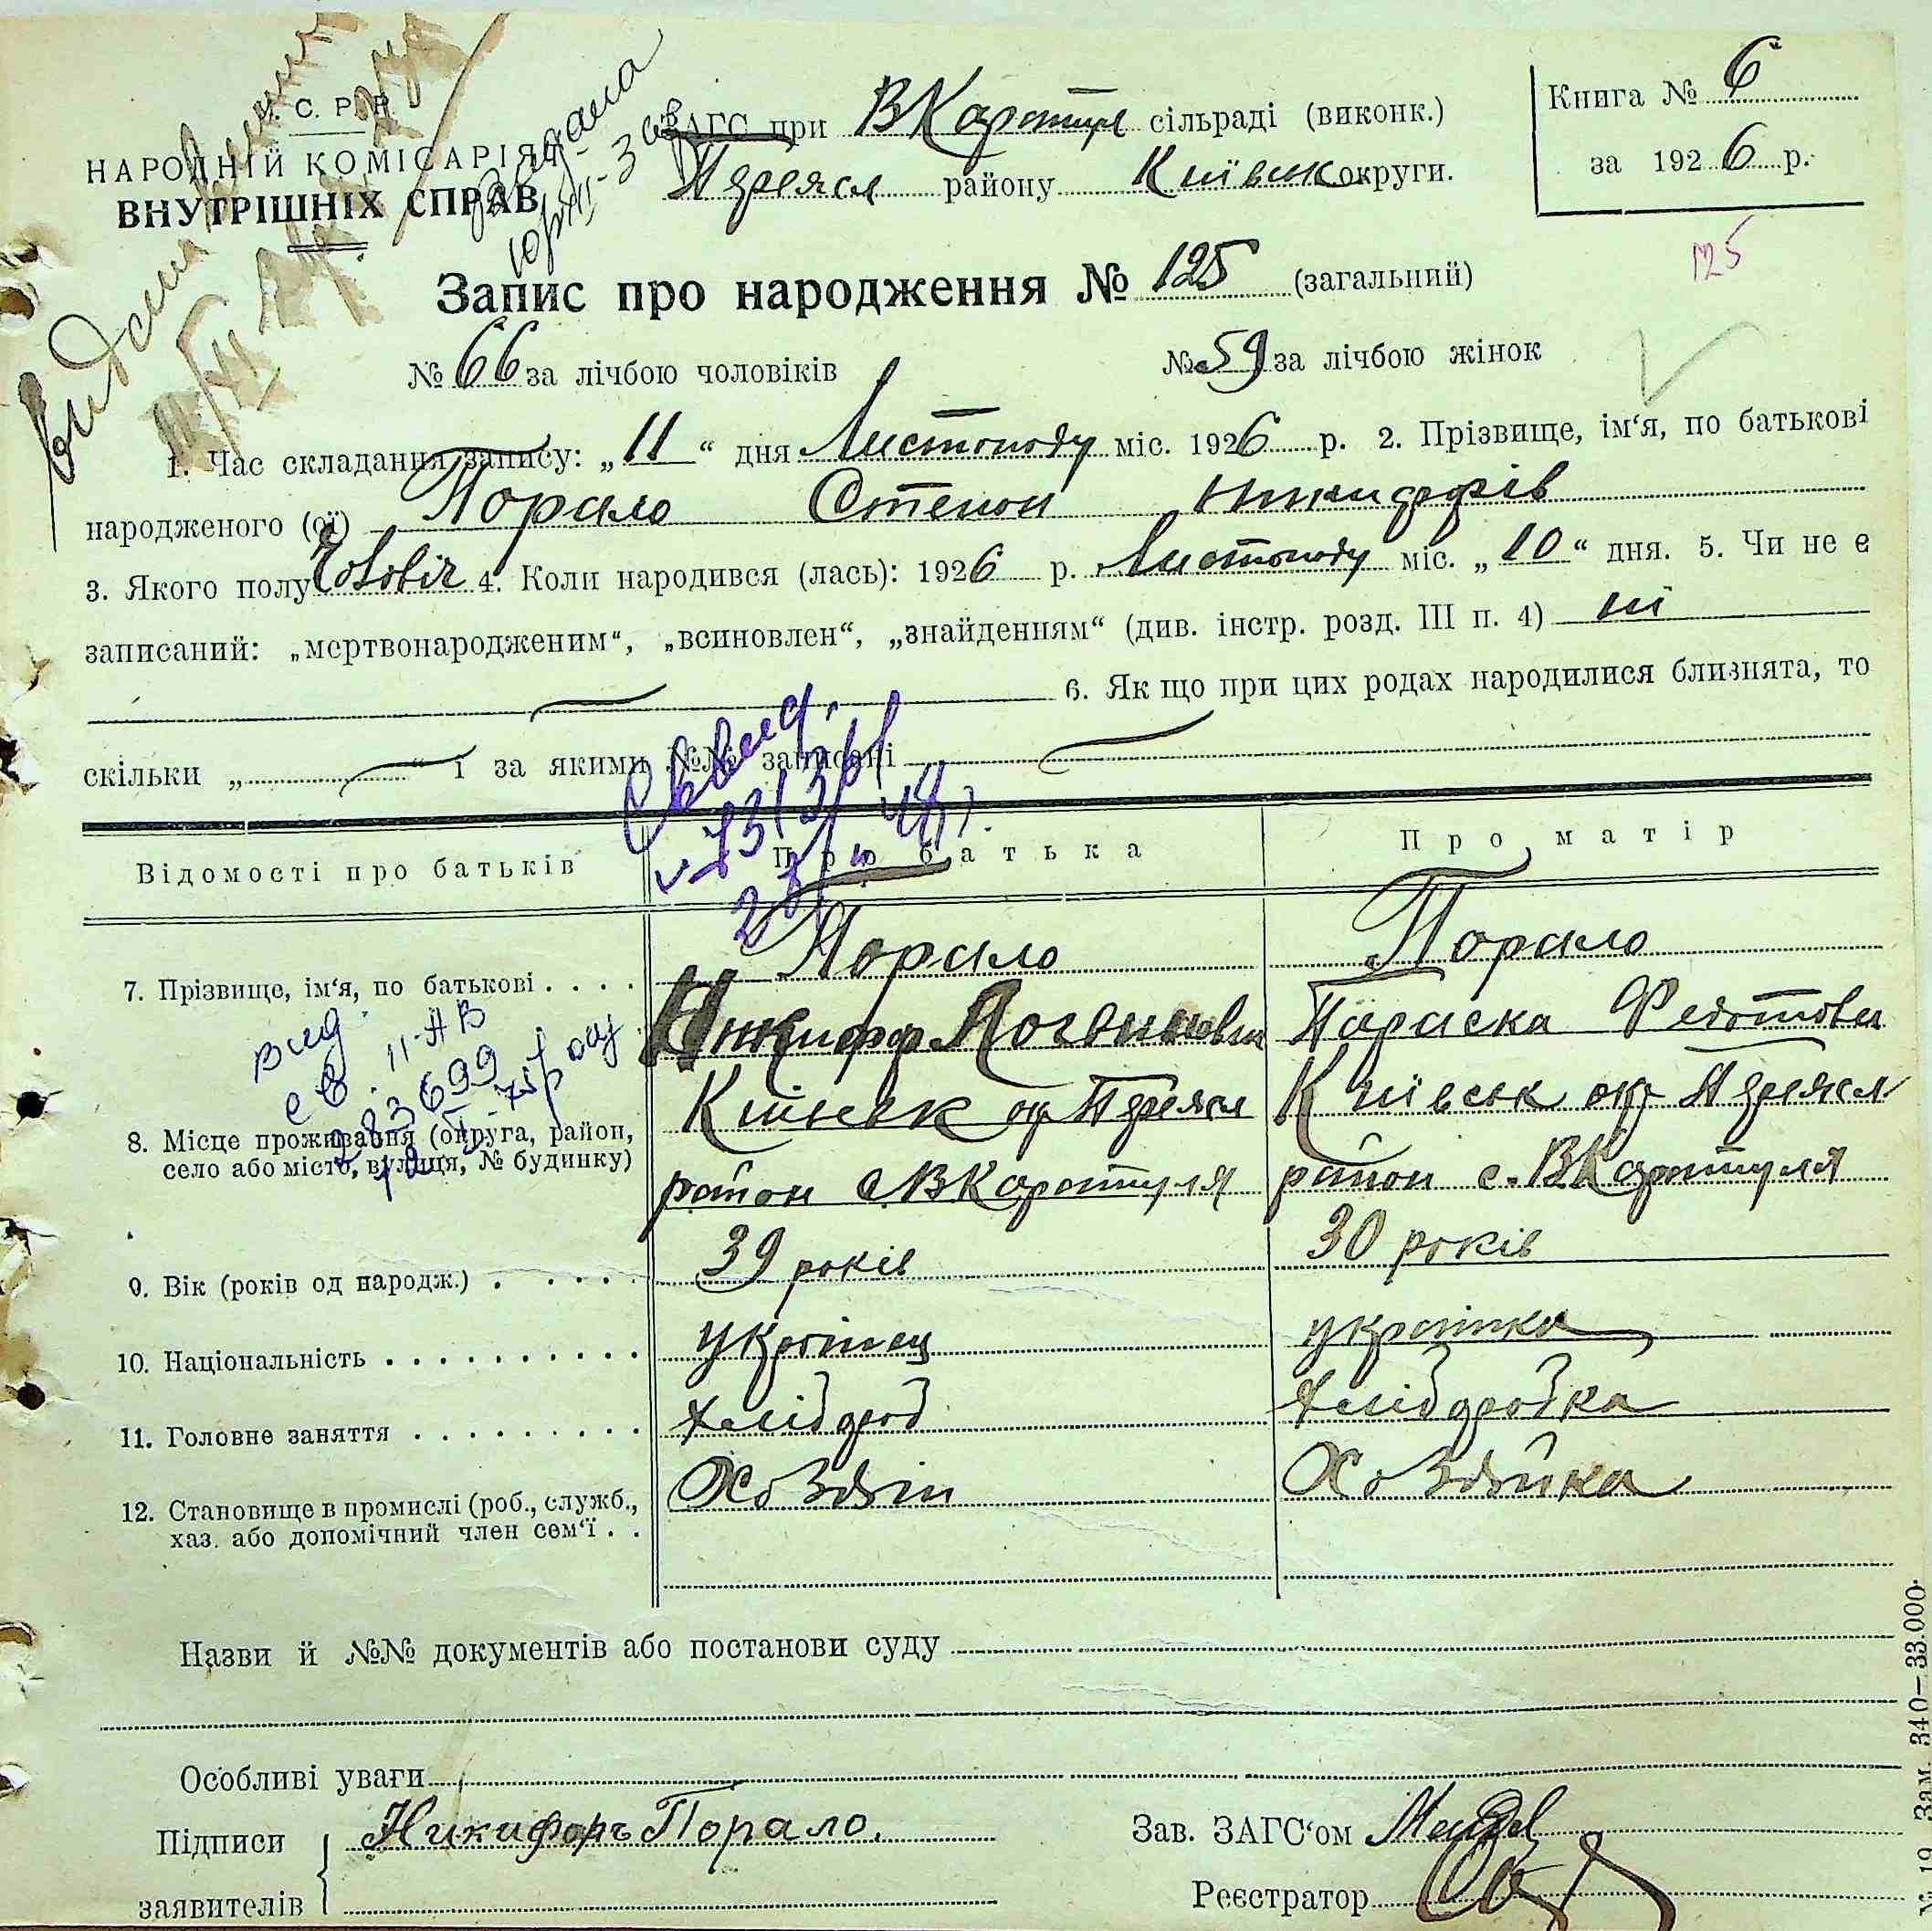 У. С. Р. Р.
НАРОДНІЙ КОМІСАРІЯТ
ВНУТРІШНІХ СПРАВ
ЗАГС при ВКаратул сільраді (виконк.)
Переясл району Київськ округи.
Книга № 6
за 1926 р.
125
Запис про народження № 125 (загальний)
№ 66 за лічбою чоловіків № 59 за лічбою жінок
1. Час складання запису: „11“ дня Листопаду міс. 1926 р. 2. Прізвище, ім‘я, по батькові
народженого (ої) Порало Степан Никифорів
3. Якого полу Чоловіч 4. Коли народився (лась): 1926 р. Листопаду міс. „10“ дня. 5. Чи не є
записаний: „мертвонародженим“, „всиновлен“, „знайденням“ (див. інстр. розд. III п. 4) ні
6. Як що при цих родах народилися близнята, то
скільки „ “ і за якими №№ записані
Відомості про батьків Про батька Про матір
7. Прізвище, ім‘я, по батькові . . . . Порало Порало
Никифор Логвинович Параска Федотовна
8. Місце проживання (округа, район, село або місто, вулиця, № будинку) Київськ ок Переясл Київськ окр Переясл
район с. ВКаратуля район с. ВКаратуля
9. Вік (років од народж.) . . . . . 39 років 30 років
10. Національність . . . . . . . . . . українец українка
11. Головне заняття . . . . . . . . . хлібороб хліборобка
12. Становище в промислі (роб., служб., хаз. або допомічний член сем‘ї . . Хозяїн Хозяйка
Назви й №№ документів або постанови суду
Особливі уваги
Підписи Никифоръ Порало.
заявителів
Зав. ЗАГС‘ом
Реєстратор
19 Зам. 340—33.000.